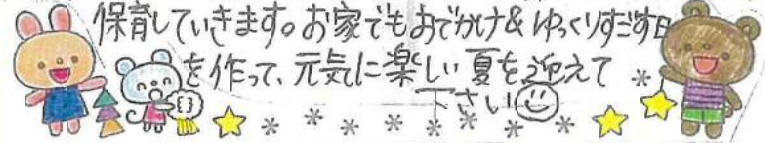 保育していきます。お家でもおでかけ&ゆっくりすごす日
を作って、元気に楽しい夏を迎えて
下さい